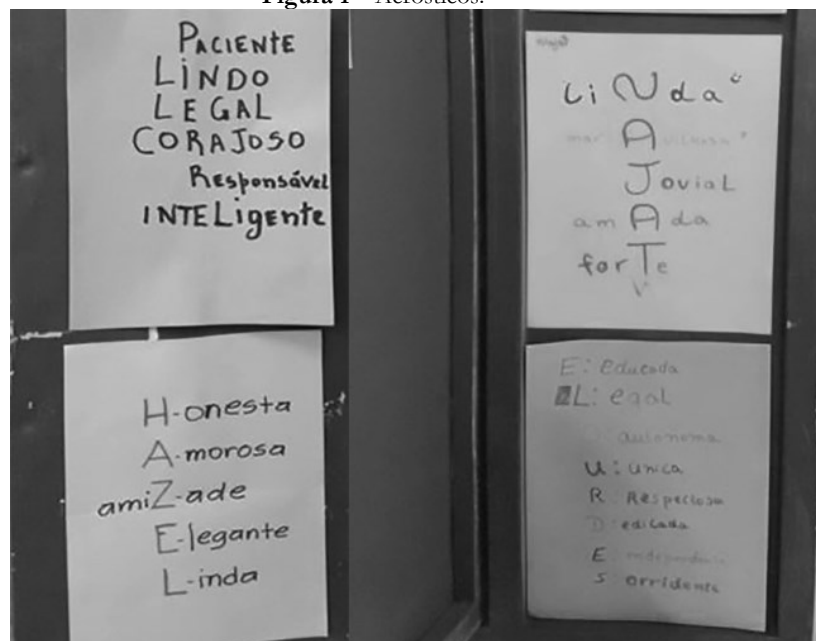 Figura 1 - Acrósticos.
PACIENTE
LINDO
LEGAL
CORAJOSO
Responsável
INTELigente
H-onesta
A-morosa
amiZ-ade
E-legante
L-inda
LiNda
A
JoviaL
amAda
forTe
E: educada
L: egal
autonoma
U: unica
R Respeitosa
D edicada
E
S orridente